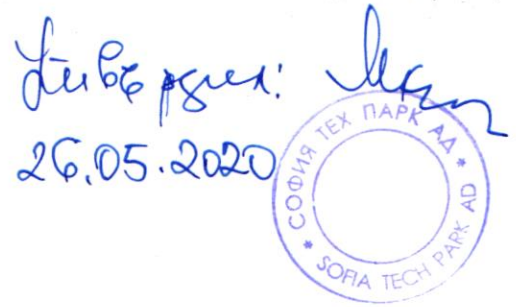 Утвърдил:
26.05.2020
* СОФИЯ ТЕХ ПАРК АД * SOFIA TECH PARK AD